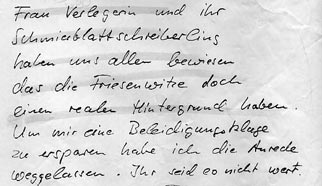 Frau Verlegerin und ihr
Schmierblattschreiberling
haben uns allen bewiesen
das die Friesenwitze doch
einen realen Hintergrund haben.
Um mir eine Beleidigungsklage
zu ersparen habe ich die Anrede
weggelassen. Ihr seid es nicht wert.